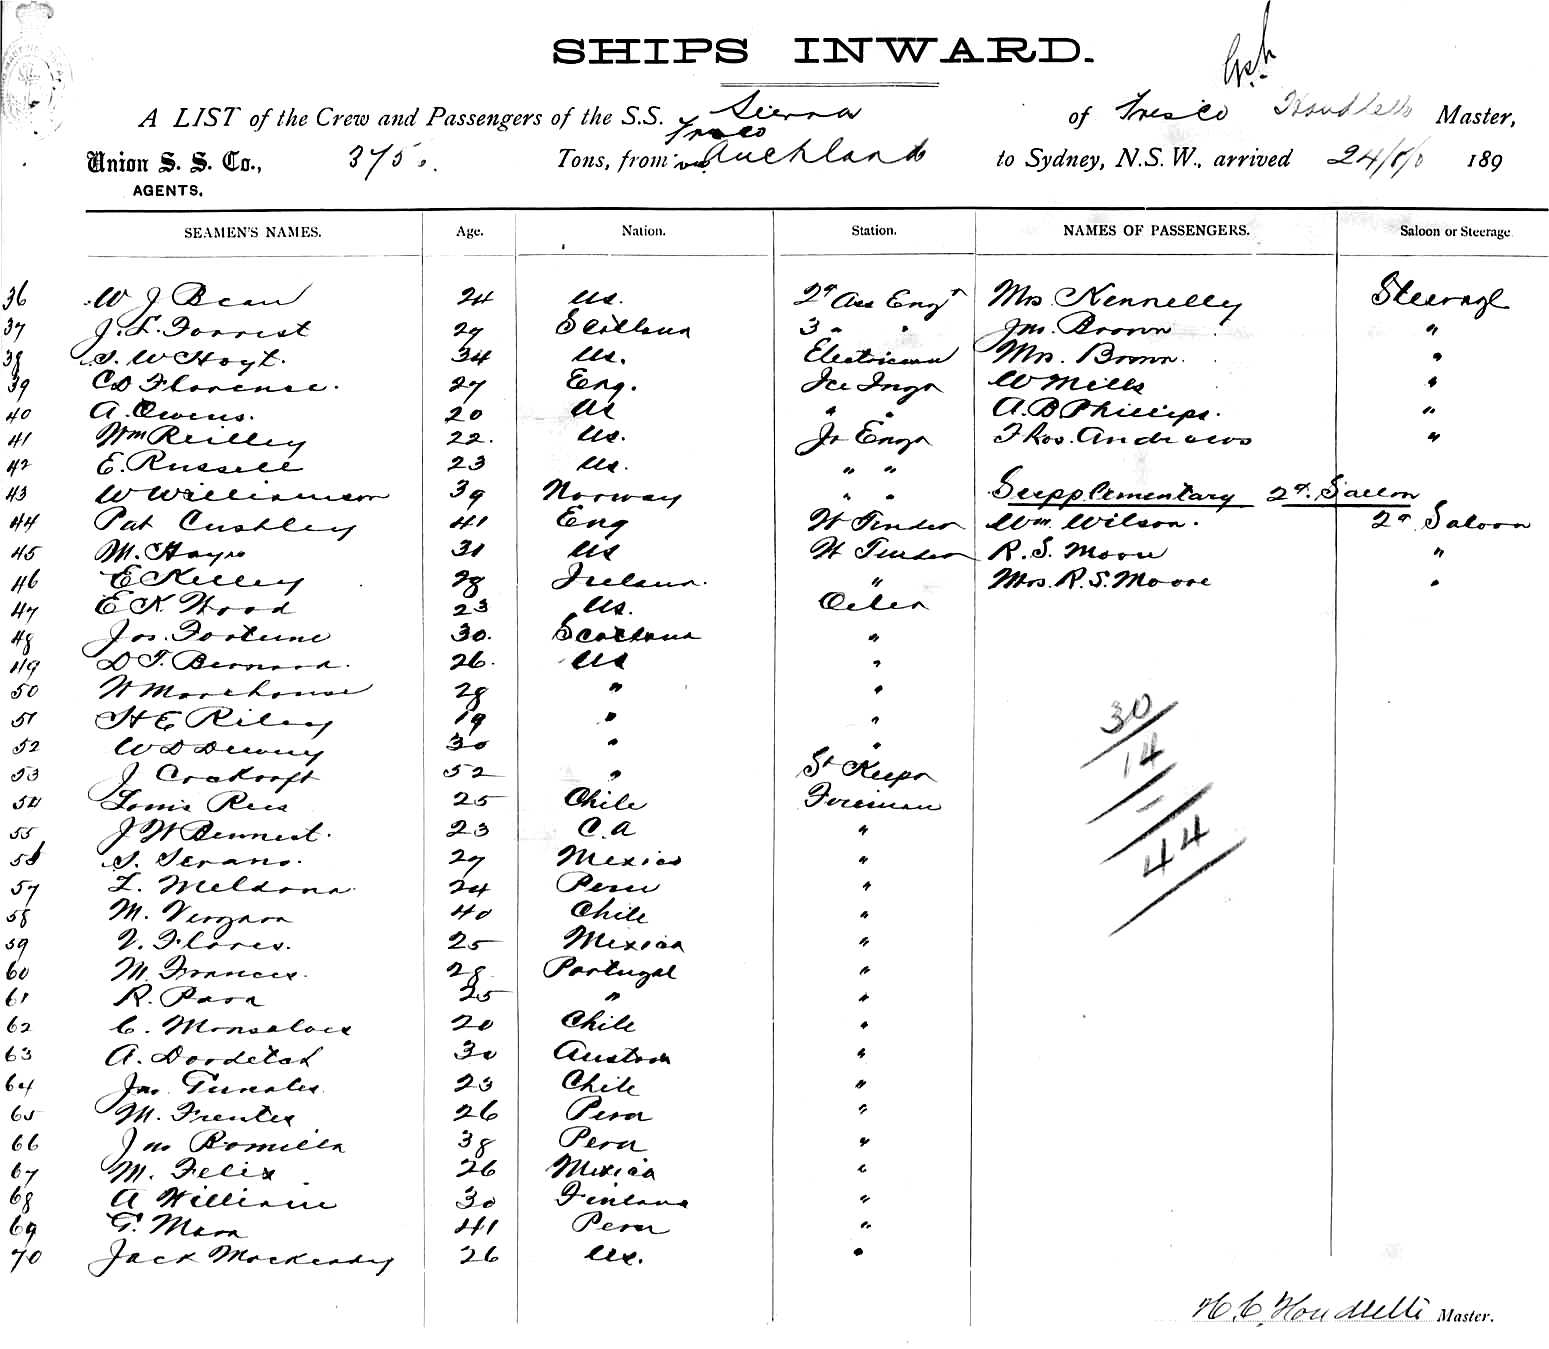 SHIPS INWARD.
A LIST of the Crew and Passengers of the S.S. Sierra of Frisco Houdlette Master,
Union S. S. Co., 3750. Tons, from Frisco via Auckland to Sydney, N.S.W., arrived 24/ 189
AGENTS.
SEAMEN'S NAMES. Age. Nation. Station. NAMES OF PASSENGERS. Saloon or Steerage
36 W J Bean 24 US. 2d Ass Engr Mrs Kennelly Steerage
37 J. L. Forrest 27 Scotland 3 " " Jno. Brown "
38 S. W Hoyt. 34 US. Electrician Mrs. Brown. "
39 C D Florense. 27 Eng. Ice Engr W Mills "
40 A. Owens. 20 US " " A. B Phillips. "
41 Wm Reilley 22. US. Jr Engr Thos. Andrews "
42 E. Russell 23 US. " "
43 W Williamson 39 Norway " " Supplementary 2d. Saloon
44 Pat Cushley 41 Eng W Tender Wm. Wilson. 2d Saloon
45 M. Hayes 31 US W Tender R. S. Moore "
46 E Kelley 28 Ireland. " Mrs. R. S. Moore "
47 E K Wood 23 US. Oiler
48 Jos. Fortune 30. Scotland "
49 D T. Bernard. 26. US "
50 W Morehouse 28 " "
51 H E Riley 19 " "
52 W D Dewey 30 " "
53 J Crokroft 52 " St Keepr
54 Louis Reis 25 Chile Fireman
55 J W Bennest. 23 C. A "
56 S. Serano. 27 Mexico "
57 L. Meldona 24 Peru "
58 M. Vergara 40 Chile "
59 V. Flores. 25 Mexico "
60 M. Frances. 28 Portugal "
61 R. Para 25 " "
62 C. Monsalves 20 Chile "
63 A. 30 Austria "
64 Jno. 23 Chile "
65 M. Frentes 26 Peru "
66 Jno Romilla 38 Peru "
67 M. Felix 26 Mexico "
68 A William 30 Finland "
69 G. Mora 41 Peru "
70 Jack 26 US. "
30
14
44
H. C. Houdlette Master.